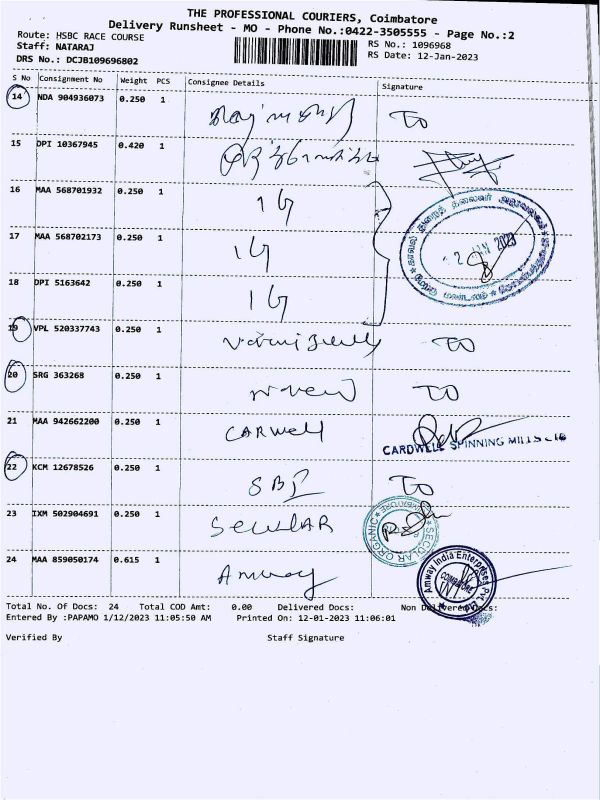 THE PROFESSIONAL COURIERS, Coimbatore
Delivery Runsheet - MO - Phone No.:0422-3505555 - Page No.:2
Route: HSBC RACE COURSE
RS No.: 1096968
Staff: NATARAJ
RS Date: 12-Jan-2023
DRS No.: DCJB109696802
S No Consignment No Weight PCS Consignee Details Signature
14 NDA 904936073 0.250 1 TO
15 DPI 10367945 0.420 1
16 MAA 568701932 0.250 1
17 MAA 568702173 0.250 1
18 DPI 5163642 0.250 1
19 VPL 520337743 0.250 1 TO
20 SRG 363268 0.250 1 TO
21 MAA 942662200 0.250 1 CARWell
CARDWELL SPINNING MILLS
22 KCM 12678526 0.250 1 SBI TO
23 IXM 502904691 0.250 1 SecULAR
SECULAR ORGANIC
24 MAA 859050174 0.615 1 Amway
Amway India Enterprises Pvt.
COIMBATORE
Total No. Of Docs: 24 Total COD Amt: 0.00 Delivered Docs: Non Delivered Docs:
Entered By :PAPAMO 1/12/2023 11:05:50 AM Printed On: 12-01-2023 11:06:01
Verified By Staff Signature